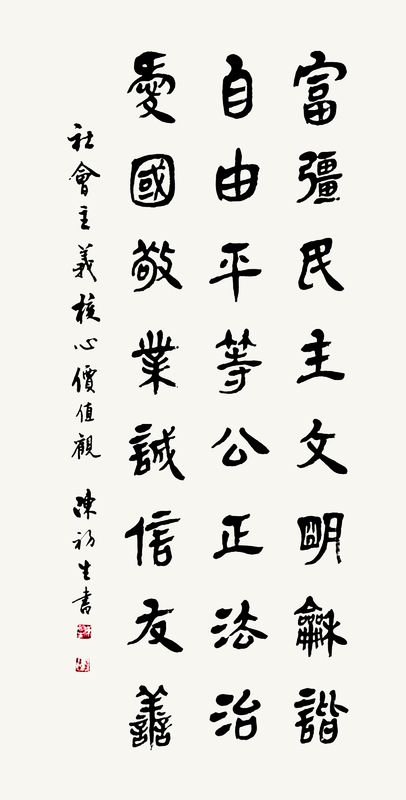 富彊民主文明龢諧
自由平等公正法治
愛國敬業誠信友善
社會主義核心價值觀 陳初生書